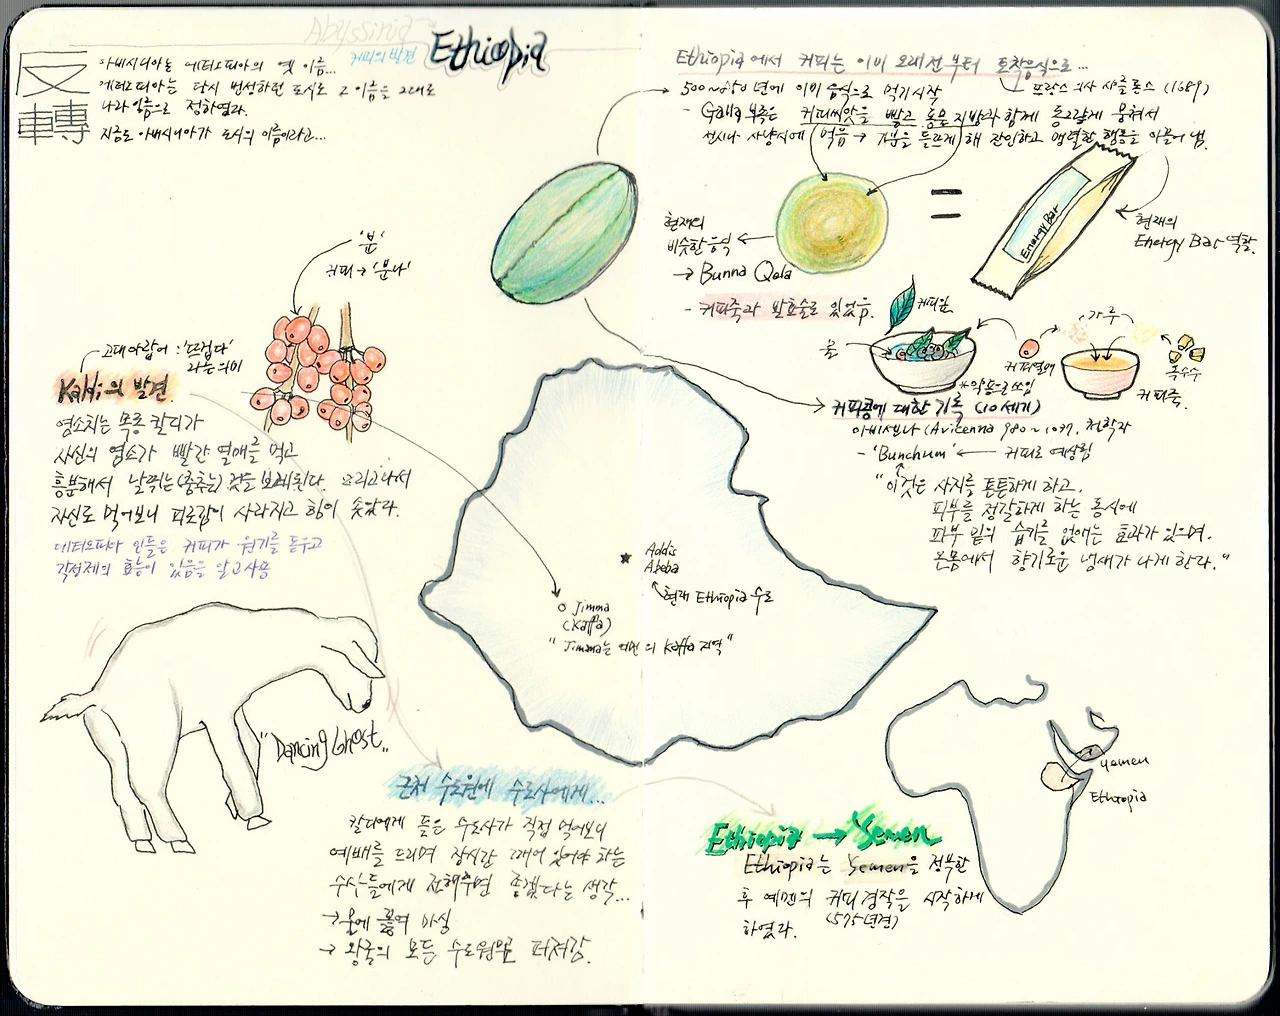 Abyssinia
커피의 발견
Ethiopia
反轉
아비시니아는 에티오피아의 옛 이름...
에티오피아는 당시 번성하던 도시로 그 이름을 그대로
나라 이름으로 정하였다.
지금도 아비시니아가 도시의 이름이라고...
'분'
커피 → '분나'
고대 아랍어 : '뜨겁다'
라는 의미
Kaldi의 발견.
염소치는 목동 칼디가
자신의 염소가 빨간 열매를 먹고
흥분해서 날뛰는(춤추는) 것을 보게된다. 그리고나서
자신도 먹어보니 피로감이 사라지고 힘이 솟았다.
에티오피아 인들은 커피가 원기를 돋우고
각성제의 효능이 있음을 알고 사용
"Dancing Ghost"
근처 수도원에 수도사에게...
칼디에게 들은 수도사가 직접 먹어보니
예배를 드리며 장시간 깨어 있어야 하는
수사들에게 전해주면 좋겠다는 생각...
→ 물에 끓여 마심
→ 왕국의 모든 수도원으로 퍼져감.
Ethiopia에서 커피는 이미 오래전부터 토착음식으로...
500~850년에 이미 음식으로 먹기시작
프랑스 의사 샤를 론스 (1689)
- Galla 부족은 커피씨앗을 빻고 동물지방과 함께 동그랗게 뭉쳐서
전시나 사냥시에 먹음 → 기분을 들뜨게 해 잔인하고 맹렬한 행동을 이끌어 냄.
현재의
비슷한 음식
→ Bunna Qela
=
Energy Bar
현재의
Energy Bar 역할.
- 커피죽과 발효술로 있었음.
커피잎
물
*약용으로 쓰임
커피열매
가루
옥수수
커피죽.
커피콩에 대한 기록 (10세기)
아비센나 (Avicenna 980~1037. 철학자
- 'Bunchum' ← 커피로 예상됨
"이것은 사지를 튼튼하게 하고.
피부를 정갈하게 하는 동시에
피부 밑의 습기를 없애는 효과가 있으며.
온몸에서 향기로운 냄새가 나게 한다."
Addis
Abeba
현재 Ethiopia 수도
Jimma
(Kaffa)
"Jimma는 예전의 Kaffa 지역"
Yemen
Ethiopia
Ethiopia → Yemen
Ethiopia는 Yemen을 정복한
후 예멘의 커피 경작을 시작하게
하였다. (575년경)